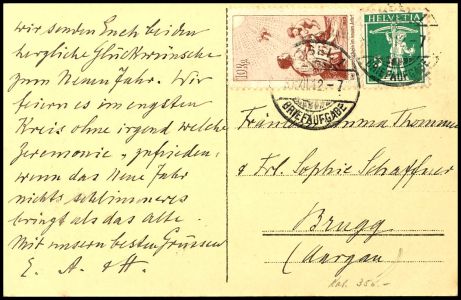 wir senden Euch beiden
herzliche Glückwünsche
zum Neuen Jahr. Wir
feiern es im engsten
Kreis ohne irgend welche
Zeremonie, zufrieden,
wenn das Neue Jahr
nichts schlimmeres
bringt als das alte.
Mit unsern besten Grüssen
E. A. & H.
HELVETIA
12-7
BRIEFAUFGABE
BRIEFAUFGABE
Fräulein Emma Thommen
& Frl. Sophie Schaffner
Brugg
(Aargau)
Kat. 350.-